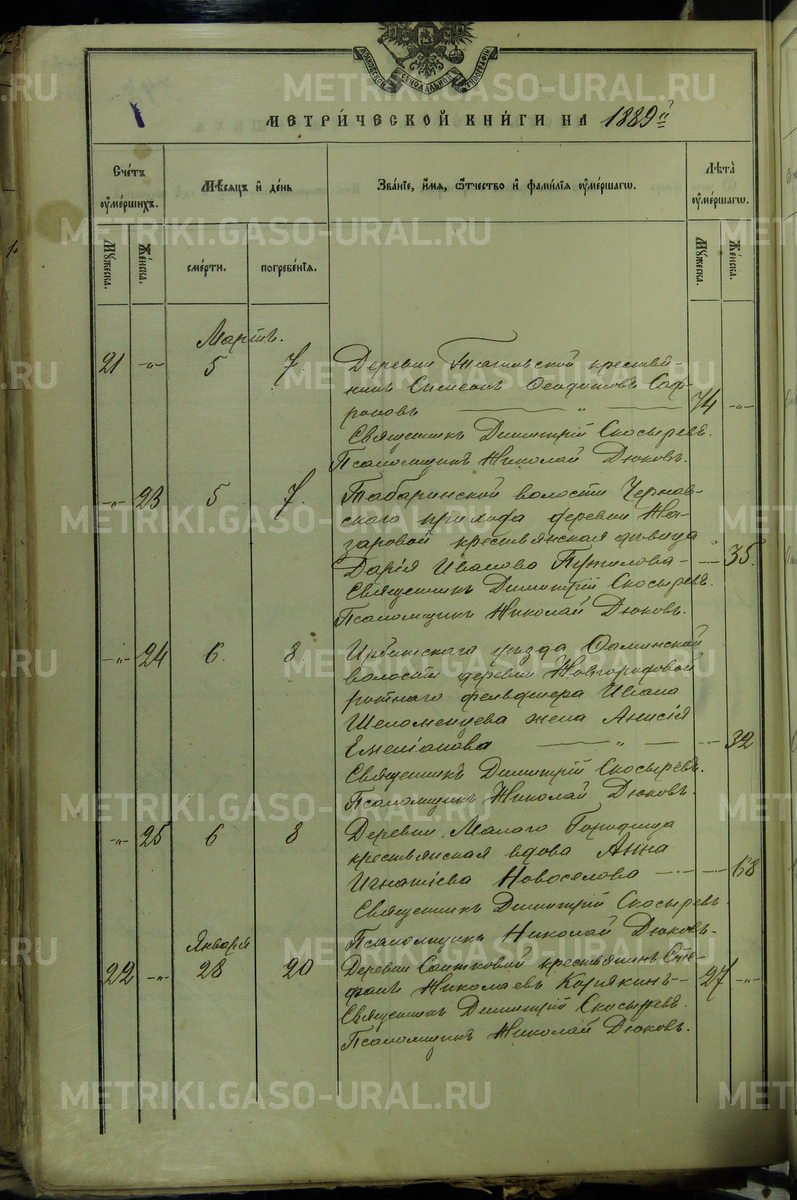 МЕТРИ́ЧЕСКОЙ КНИ́ГИ НА 1889 й
Счетъ оумершихъ.
Мѣсяцъ и день
Званіе, имя, отчество и фамилія оумершагѡ.
Лѣта оумершагѡ.
Мужеска.
Женска.
смерти.
погребенія.
Мужеска.
Женска.
Мартъ.
21 -„- 5 7 Деревни крестья-
нинъ Симеонъ Саф-
роновъ „ 74 -„-
Священникъ Димитрій Скосыревъ.
Псаломщикъ Николай Дюковъ.
-„- 23 5 7 Табаринской волости Чернов-
скаго прихода деревни На-
заровой крестьянская дѣвица
Дарія Иванова 35.
Священникъ Димитрій Скосыревъ.
Псаломщикъ Николай Дюковъ.
-„- 24 6. 8. Ирбитскаго уѣзда
волости деревни Новгородовой
ротнаго фельдшера Ивана
Шеломенцева жена Анисія
Емеліанова „ 32
Священникъ Димитрій Скосыревъ.
Псаломщикъ Николай Дюковъ.
-„- 25 6 8 Деревни Малаго Городища
крестьянская вдова Анна
Игнатіева Новоселова 68
Священникъ Димитрій Скосыревъ.
Псаломщикъ Николай Дюковъ.
Января
22 -„- 28 20 Деревни крестьянинъ Сте-
фанъ Николаевъ Корякинъ 27 -„-
Священникъ Димитрій Скосыревъ.
Псаломщикъ Николай Дюковъ.
METRIKI.GASO-URAL.RU